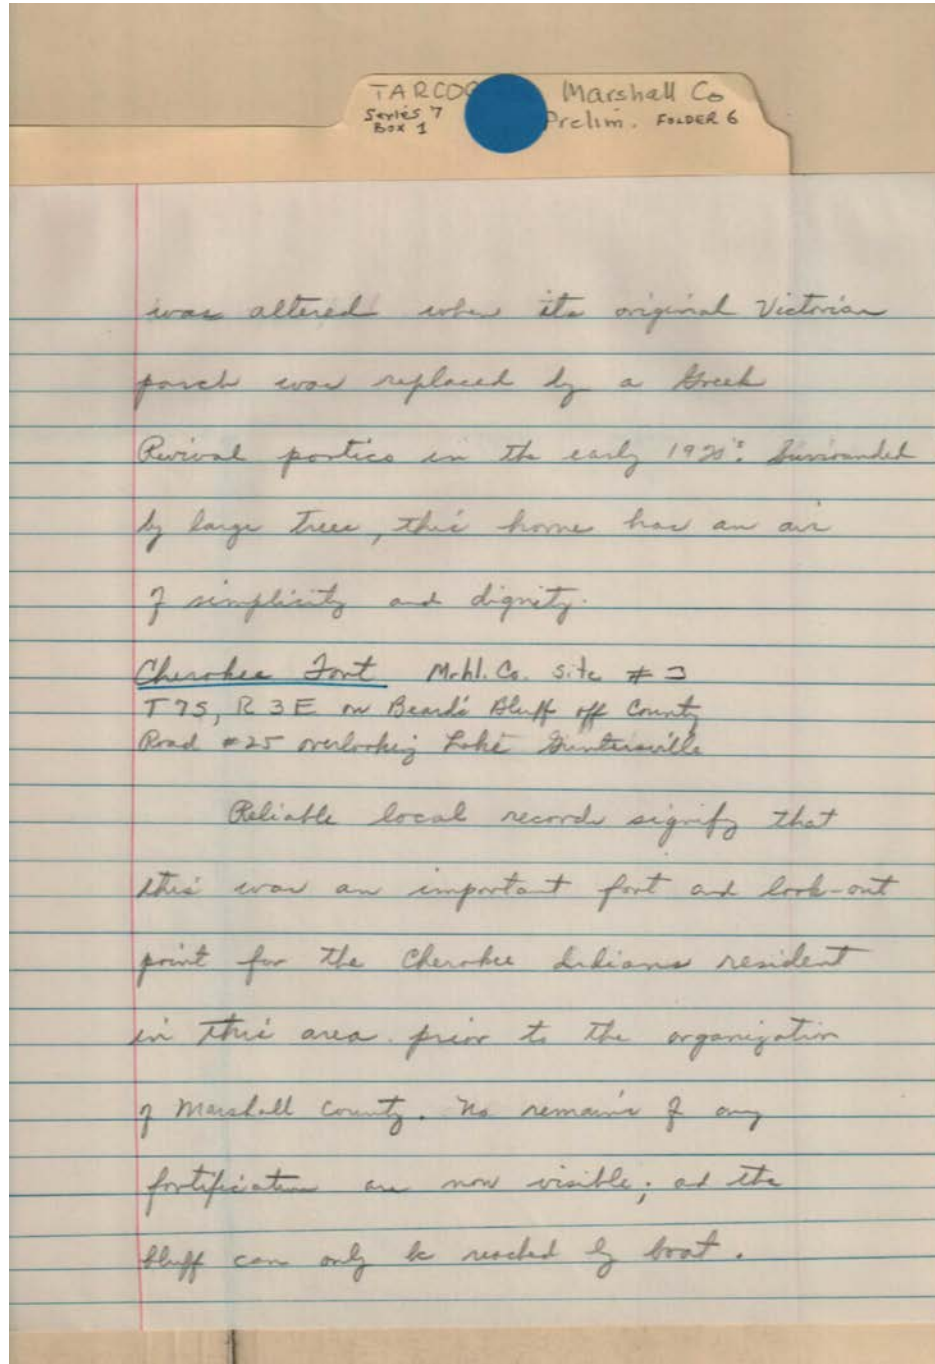 TARCOG Marshall Co
Series 7 Prelim. FOLDER 6
Box 1
was altered when its original Victorian
porch was replaced by a Greek
Revival portico in the early 1920's. Surrounded
by large trees, this home has an air
of simplicity and dignity.
Cherokee Fort Mrhl. Co. Site #
T7S, R3E on Beard's Bluff off County
Road #25 overlooking Lake Guntersville
Reliable local records signify that
this was an important fort and look-out
point for the Cherokee Indians resident
in this area prior to the organization
of Marshall County. No remains of any
fortification are now visible; and the
bluff can only be reached by boat.